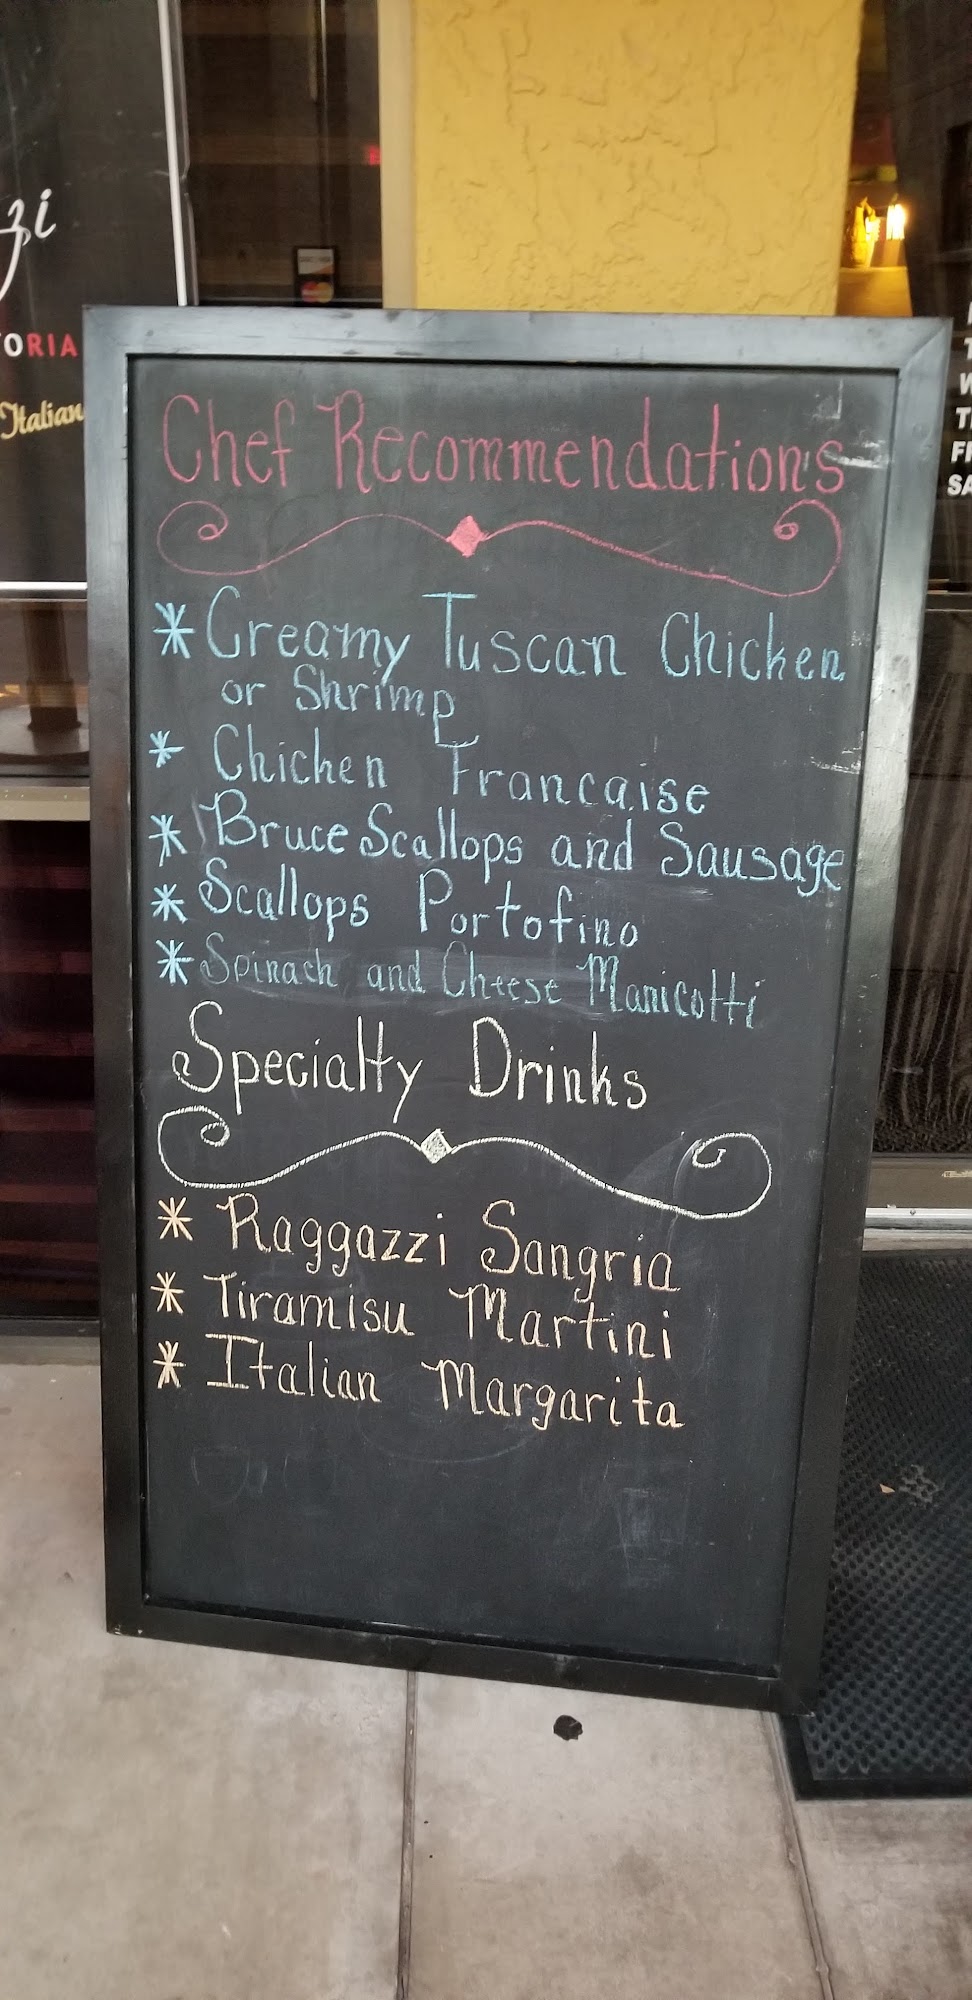 zi
ORIA
Italian
Chef Recommendations
* Creamy Tuscan Chicken
or Shrimp
* Chicken Francaise
* Bruce Scallops and Sausage
* Scallops Portofino
* Spinach and Cheese Manicotti
Specialty Drinks
* Raggazzi Sangria
* Tiramisu Martini
* Italian Margarita